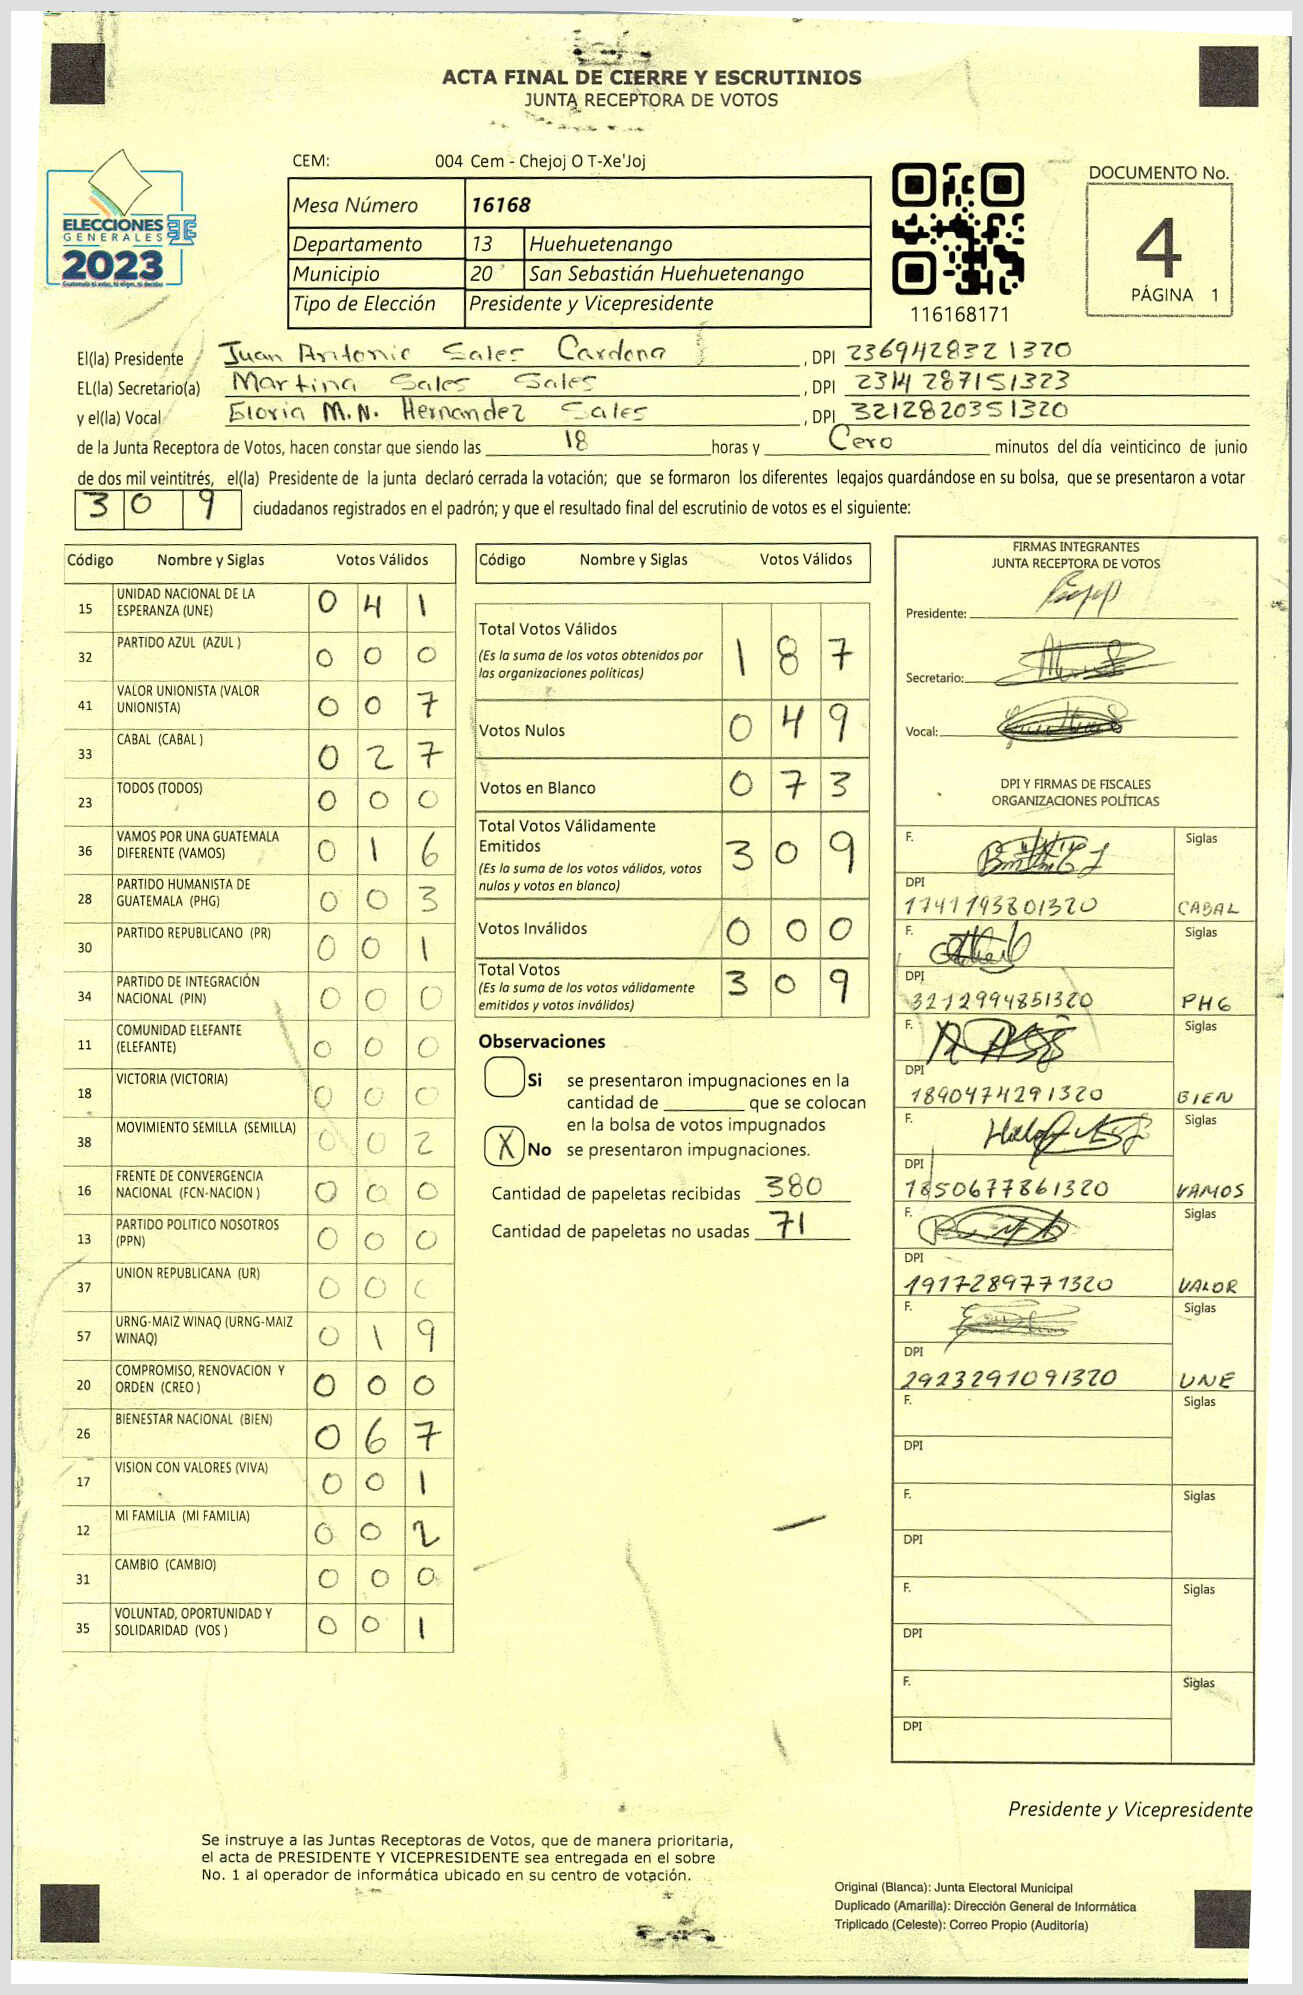 ACTA FINAL DE CIERRE Y ESCRUTINIOS
JUNTA RECEPTORA DE VOTOS
CEM: 004 Cem - Chejoj O T-Xe'Joj
ELECCIONES
GENERALES
2023
Mesa Número 16168
Departamento 13 Huehuetenango
Municipio 20 San Sebastián Huehuetenango
Tipo de Elección Presidente y Vicepresidente
116168171
DOCUMENTO No.
4
PÁGINA 1
El(la) Presidente Juan Antonio Sales Cardona, DPI 2369428321320
EL(la) Secretario(a) Martina Sales Sales, DPI 2314 287151323
y el(la) Vocal Gloria M.N. Hernandez Sales, DPI 3212820351320
de la Junta Receptora de Votos, hacen constar que siendo las 18 horas y Cero minutos del día veinticinco de junio
de dos mil veintitrés, el(la) Presidente de la junta declaró cerrada la votación; que se formaron los diferentes legajos guardándose en su bolsa, que se presentaron a votar
309 ciudadanos registrados en el padrón; y que el resultado final del escrutinio de votos es el siguiente:
Código Nombre y Siglas Votos Válidos
15 UNIDAD NACIONAL DE LA ESPERANZA (UNE) 0 4 1
32 PARTIDO AZUL (AZUL ) 0 0 0
41 VALOR UNIONISTA (VALOR UNIONISTA) 0 0 7
33 CABAL (CABAL ) 0 2 7
23 TODOS (TODOS) 0 0 0
36 VAMOS POR UNA GUATEMALA DIFERENTE (VAMOS) 0 1 6
28 PARTIDO HUMANISTA DE GUATEMALA (PHG) 0 0 3
30 PARTIDO REPUBLICANO (PR) 0 0 1
34 PARTIDO DE INTEGRACIÓN NACIONAL (PIN) 0 0 0
11 COMUNIDAD ELEFANTE (ELEFANTE) 0 0 0
18 VICTORIA (VICTORIA) 0 0 0
38 MOVIMIENTO SEMILLA (SEMILLA) 0 0 2
16 FRENTE DE CONVERGENCIA NACIONAL (FCN-NACION ) 0 0 0
13 PARTIDO POLITICO NOSOTROS (PPN) 0 0 0
37 UNION REPUBLICANA (UR) 0 0 0
57 URNG-MAIZ WINAQ (URNG-MAIZ WINAQ) 0 1 9
20 COMPROMISO, RENOVACION Y ORDEN (CREO ) 0 0 0
26 BIENESTAR NACIONAL (BIEN) 0 6 7
17 VISION CON VALORES (VIVA) 0 0 1
12 MI FAMILIA (MI FAMILIA) 0 0 2
31 CAMBIO (CAMBIO) 0 0 0
35 VOLUNTAD, OPORTUNIDAD Y SOLIDARIDAD (VOS ) 0 0 1
Código Nombre y Siglas Votos Válidos
Total Votos Válidos 1 8 7
(Es la suma de los votos obtenidos por
las organizaciones políticas)
Votos Nulos 0 4 9
Votos en Blanco 0 7 3
Total Votos Válidamente
Emitidos 3 0 9
(Es la suma de los votos válidos, votos
nulos y votos en blanco)
Votos Inválidos 0 0 0
Total Votos 3 0 9
(Es la suma de los votos válidamente
emitidos y votos inválidos)
Observaciones
Si se presentaron impugnaciones en la
cantidad de ________ que se colocan
en la bolsa de votos impugnados
X No se presentaron impugnaciones.
Cantidad de papeletas recibidas 380
Cantidad de papeletas no usadas 71
FIRMAS INTEGRANTES
JUNTA RECEPTORA DE VOTOS
Presidente:
Secretario:
Vocal:
DPI Y FIRMAS DE FISCALES
ORGANIZACIONES POLÍTICAS
F. Siglas
DPI
1741193801320 CABAL
F. Siglas
DPI
3212994851320 PHG
F. Siglas
DPI
1890474291320 BIEN
F. Siglas
DPI
1850677861320 VAMOS
F. Siglas
DPI
1917289771320 VALOR
F. Siglas
DPI
2923291091320 UNE
F. Siglas
DPI
F. Siglas
DPI
F. Siglas
DPI
F. Siglas
DPI
Presidente y Vicepresidente
Se instruye a las Juntas Receptoras de Votos, que de manera prioritaria,
el acta de PRESIDENTE Y VICEPRESIDENTE sea entregada en el sobre
No. 1 al operador de informática ubicado en su centro de votación.
Original (Blanca): Junta Electoral Municipal
Duplicado (Amarilla): Dirección General de Informática
Triplicado (Celeste): Correo Propio (Auditoría)